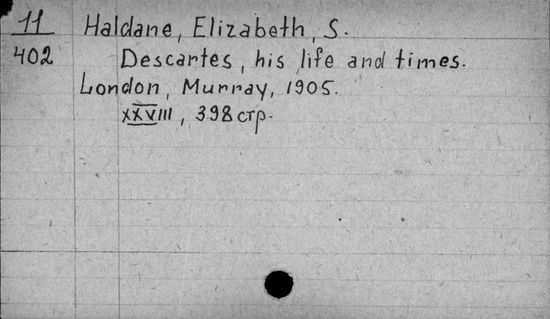 11 Haldane, Elizabeth, S.
402 Descartes, his life and times.
London, Murray, 1905.
XXVIII, 398 стр.